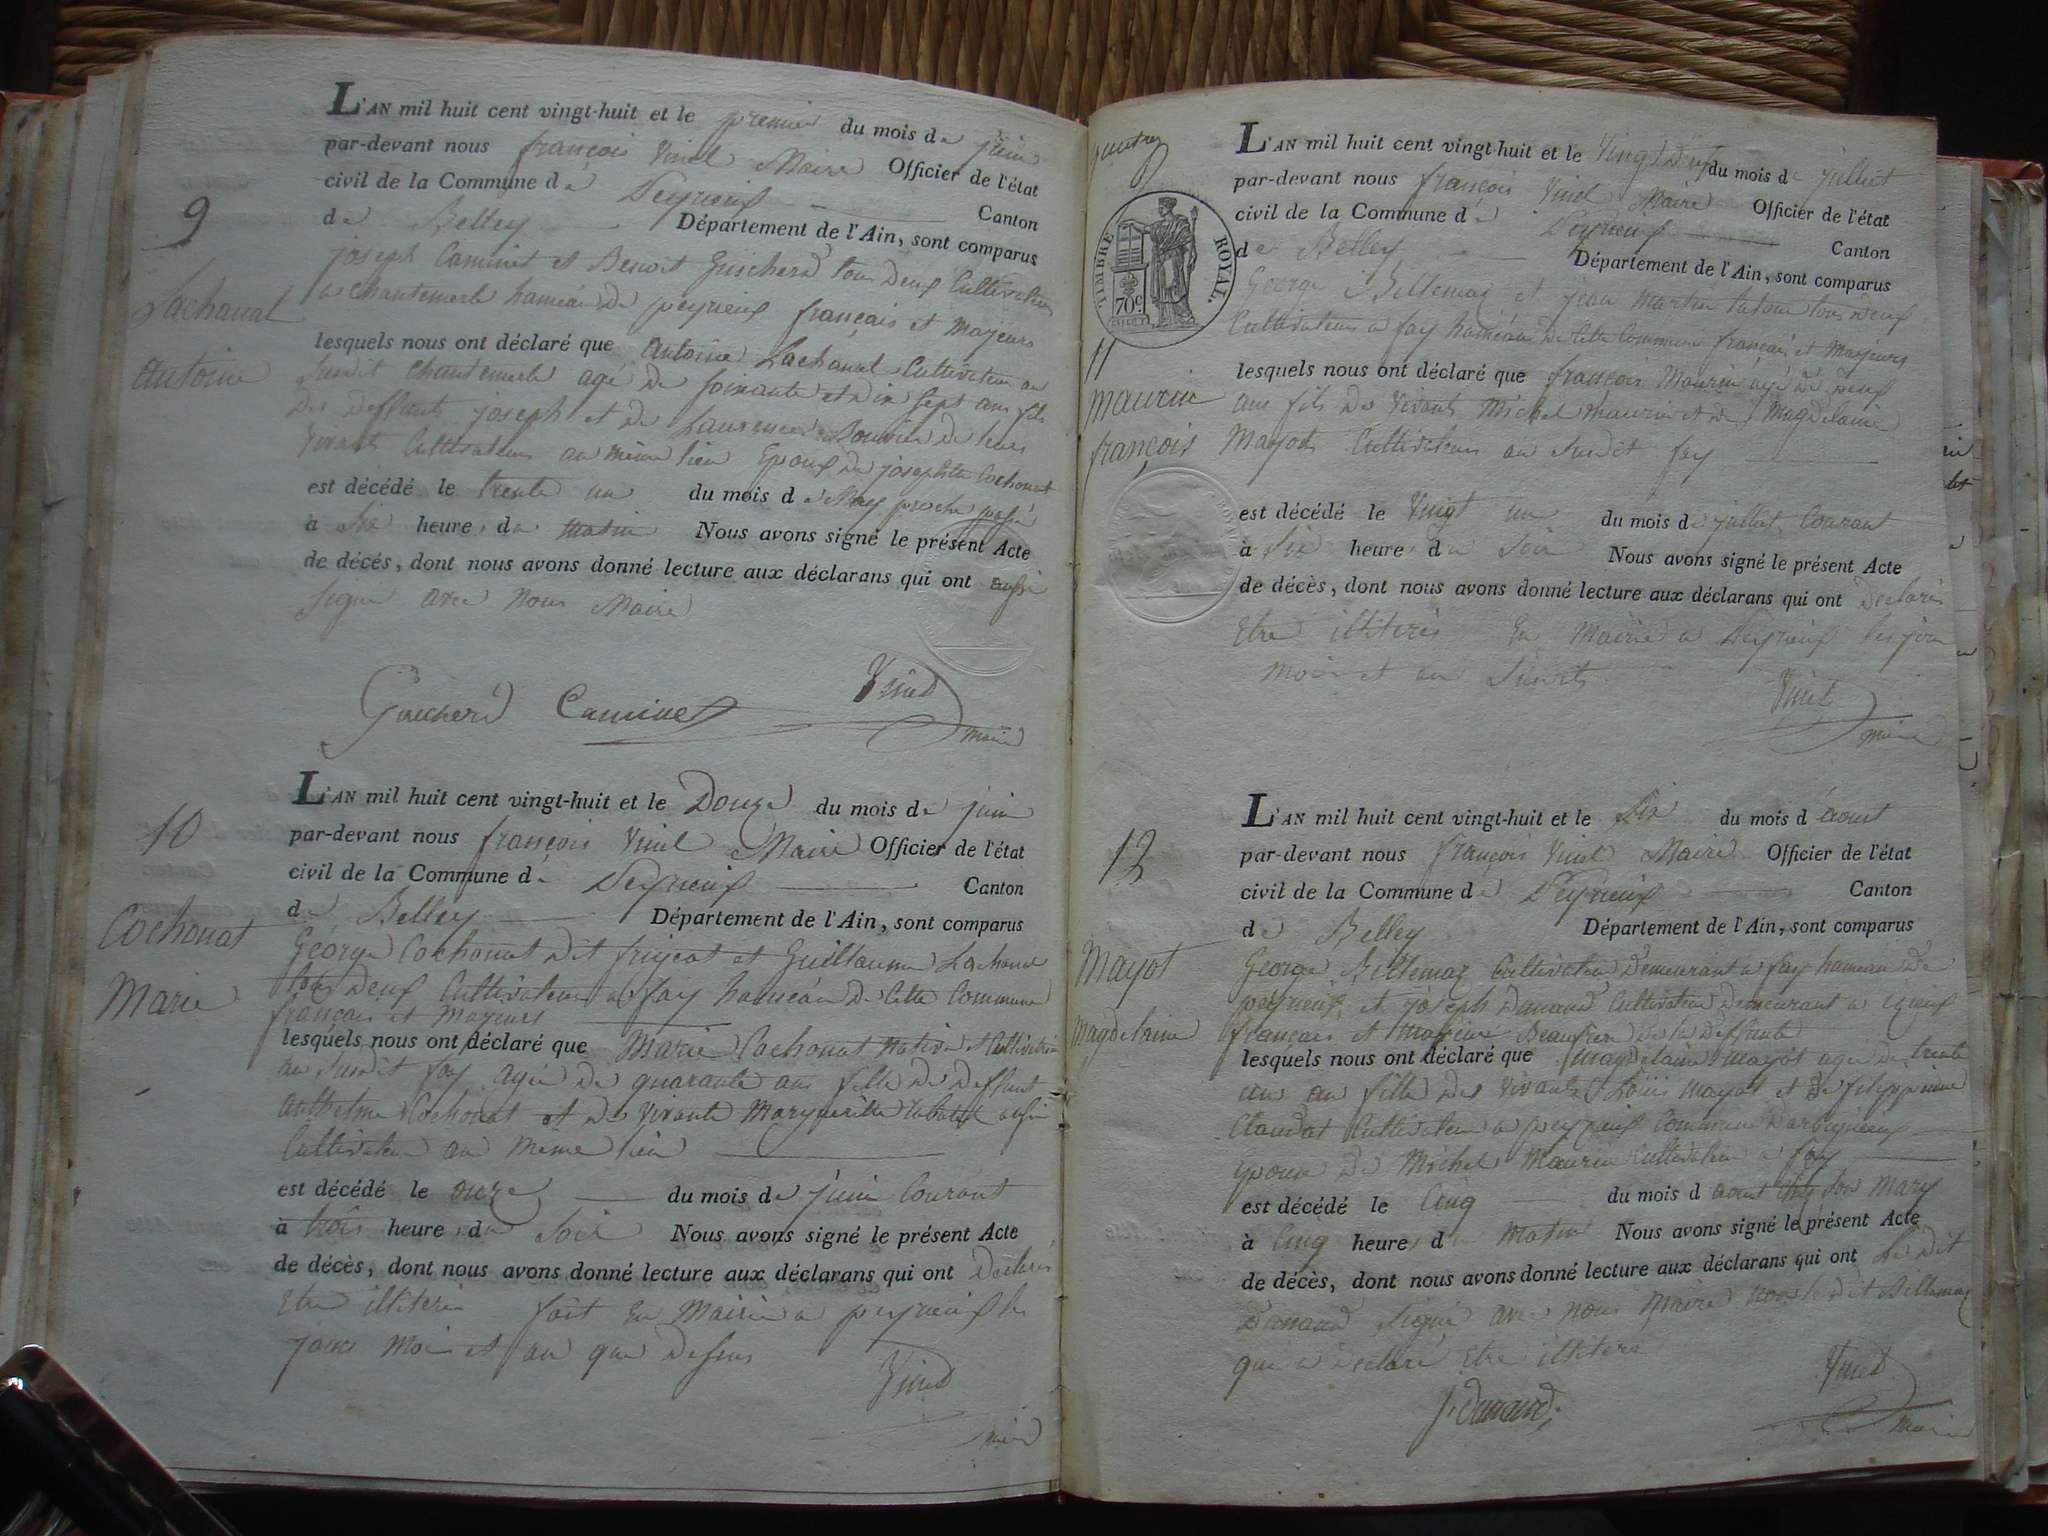 9
Lachanal
Antoine
L'AN mil huit cent vingt-huit et le premier du mois de juin
par-devant nous françois Vinel Maire Officier de l'état
civil de la Commune de Peyrieux Canton
de Belley Département de l'Ain, sont comparus
joseph Caminet et Benoit Guicherd tous deux Cultivateurs
a Chantemerle haméau de peyrieux français et mayeurs
lesquels nous ont déclaré que Antoine Lachanal Cultivateur au
susdit Chantemerle agé de soixante et dix sept ans fils
des deffunts joseph et de Laurence Bouvier de leurs
vivants Cultivateurs au même lieu Epoux de josephte Cochonat
est décédé le trente un du mois de May proche passé
à six heure, du matin Nous avons signé le présent Acte
de décés, dont nous avons donné lecture aux déclarans qui ont aussi
signé avec nous Maire
Guicherd Caminet Vinel
maire
10
Cochonat
Marie
L'AN mil huit cent vingt-huit et le Douze du mois de juin
par-devant nous françois Vinel Maire Officier de l'état
civil de la Commune de Peyrieux Canton
de Belley Département de l'Ain, sont comparus
George Cochonat dit et Guillaume Lachanal
tous deux Cultivateurs a fay haméau de Cette Commune
français et mayeurs
lesquels nous ont déclaré que Marie Cochonat native et Cultivatrice
au susdit fay agée de quarante ans fille de deffunt
Anthelme Cochonat et de vivante Marguerite aussi
Cultivateur au même lieu
est décédé le onze du mois de juin Courant
à trois heure, du soir Nous avons signé le présent Acte
de décès, dont nous avons donné lecture aux déclarans qui ont déclarés
Etre illiterés fait En Mairie a peyrieux les
jours mois et an que dessus
Vinel
maire
TIMBRE ROYAL.
70c
11
maurin
françois
L'AN mil huit cent vingt-huit et le Vingt deux du mois de juillet
par-devant nous françois Vinel Maire Officier de l'état
civil de la Commune de Peyrieux Canton
de Belley Département de l'Ain, sont comparus
George Billemaz et jean martin tous deux
Cultivateurs a fay haméau de Cette Commune français et Mayeurs
lesquels nous ont déclaré que françois Maurin agé de deux
ans fils des vivants Michel maurin et de Magdelaine
Mayot Cultivateurs au susdit fay
est décédé le Vingt un du mois de juillet Courant
à six heure, du soir Nous avons signé le présent Acte
de décès, dont nous avons donné lecture aux déclarans qui ont déclarés
Etre illiterés En Mairie a Peyrieux les jour
mois et an susdits
Vinel
maire
12
Mayot
Magdelaine
L'AN mil huit cent vingt-huit et le Six du mois d'aout
par-devant nous françois Vinel Maire Officier de l'état
civil de la Commune de Peyrieux Canton
de Belley Département de l'Ain, sont comparus
George Billemaz Cultivateur demeurant a fay hameau de
peyrieux et joseph Dunand Cultivateur demeurant a izieux
français et mayeurs Beaufrere de la deffunte
lesquels nous ont déclaré que magdelaine mayot agée de trente
un an fille des vivants Louis mayot et de filippinne
Claudat Cultivateur a peyzieux Commune d'arbignieux
Epouse de Michel Maurin Cultivateur a fay
est décédé le Cinq du mois d'aout chez son Mary
à Cinq heure, du matin Nous avons signé le présent Acte
de décès, dont nous avons donné lecture aux déclarans qui ont Le dit
Dunand signé avec nous Maire non le dit Billemaz
que a déclaré Etre illiteré
J. Dunand Vinel
maire